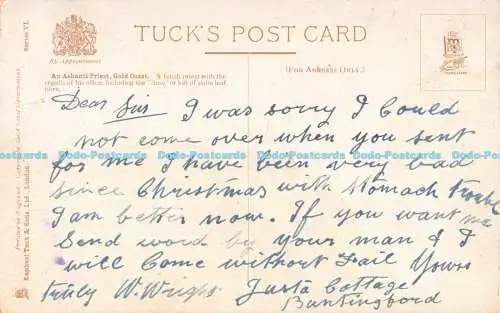 TUCK'S POST CARD
By Appointment
(FOR ADDRESS ONLY.)
An Ashanti Priest, Gold Coast. A fetish priest with the
regalia of his office, including the "doso" or kilt of palm leaf
fibres.
Series VI.
Raphael Tuck & Sons, Ltd., London.
Dear Sir I was sorry I Could
not come over when you sent
for me I have been very bad
since Christmas with stomach trouble
I am better now. If you want me
Send word by your man & I
will Come without Fail Yours
truly W. Wright Justa Cottage
Buntingford
Dodo-Postcards Dodo-Postcards Dodo-Postcards Dodo-Postcards Dodo-Postcards Dodo-Postcards Dodo-Postcards